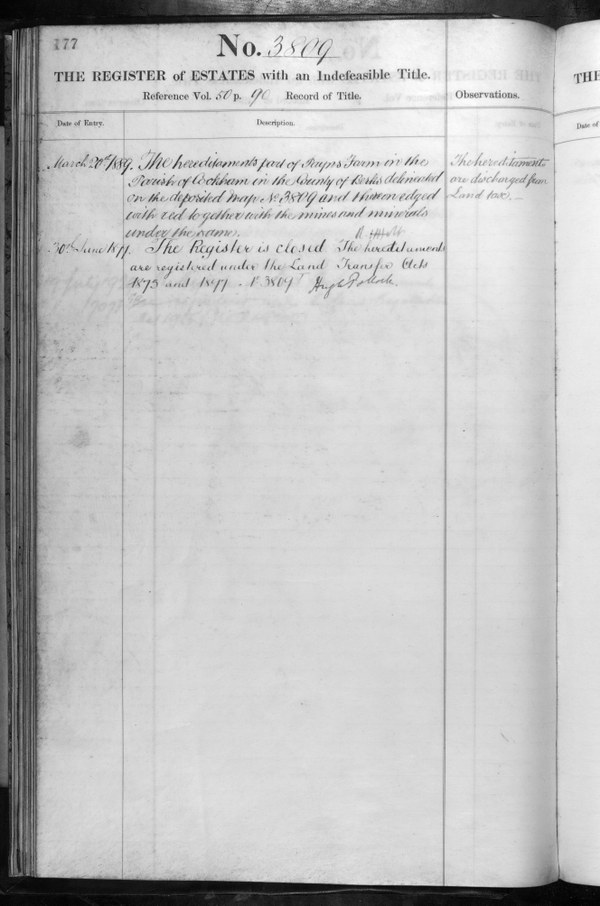 177
No. 3809
THE REGISTER of ESTATES with an Indefeasible Title.
Reference Vol. 50 p. 90 Record of Title.
Observations.
Date of Entry.
Description.
March 20th 1889. The hereditaments part of Farm in the
Parish of Cookham in the County of Berks delineated
on the deposited Map No 3809 and thereon edged
with red together with the mines and minerals
under the same.
The hereditaments
are discharged from
Land tax.
30th June 18 The Register is closed The hereditaments
are registered under the Land Transfer Acts
1875 and 1897. 3809 Hugh Pollock.
THE
Date of